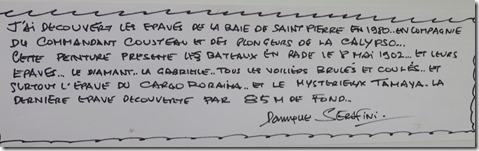 J'AI DECOUVERT LES EPAVES DE LA BAIE DE SAINT PIERRE EN 1980.. EN COMPAGNIE
DU COMMANDANT COUSTEAU ET DES PLONGEURS DE LA CALYPSO...
CETTE PEINTURE PRESENTE LES BATEAUX EN RADE LE 8 MAI 1902.. ET LEURS
EPAVES... LE DIAMANT.. LA GABRIELLE.. TOUS LES VOILIERS BRULÉS ET COULÉS.. ET
SURTOUT L'EPAVE DU CARGO RORAIMA.. ET LE MYSTERIEUX TAMAYA. LA
DERNIÈRE EPAVE DECOUVERTE PAR 85 M DE FOND..
Dominique SERAFINI.